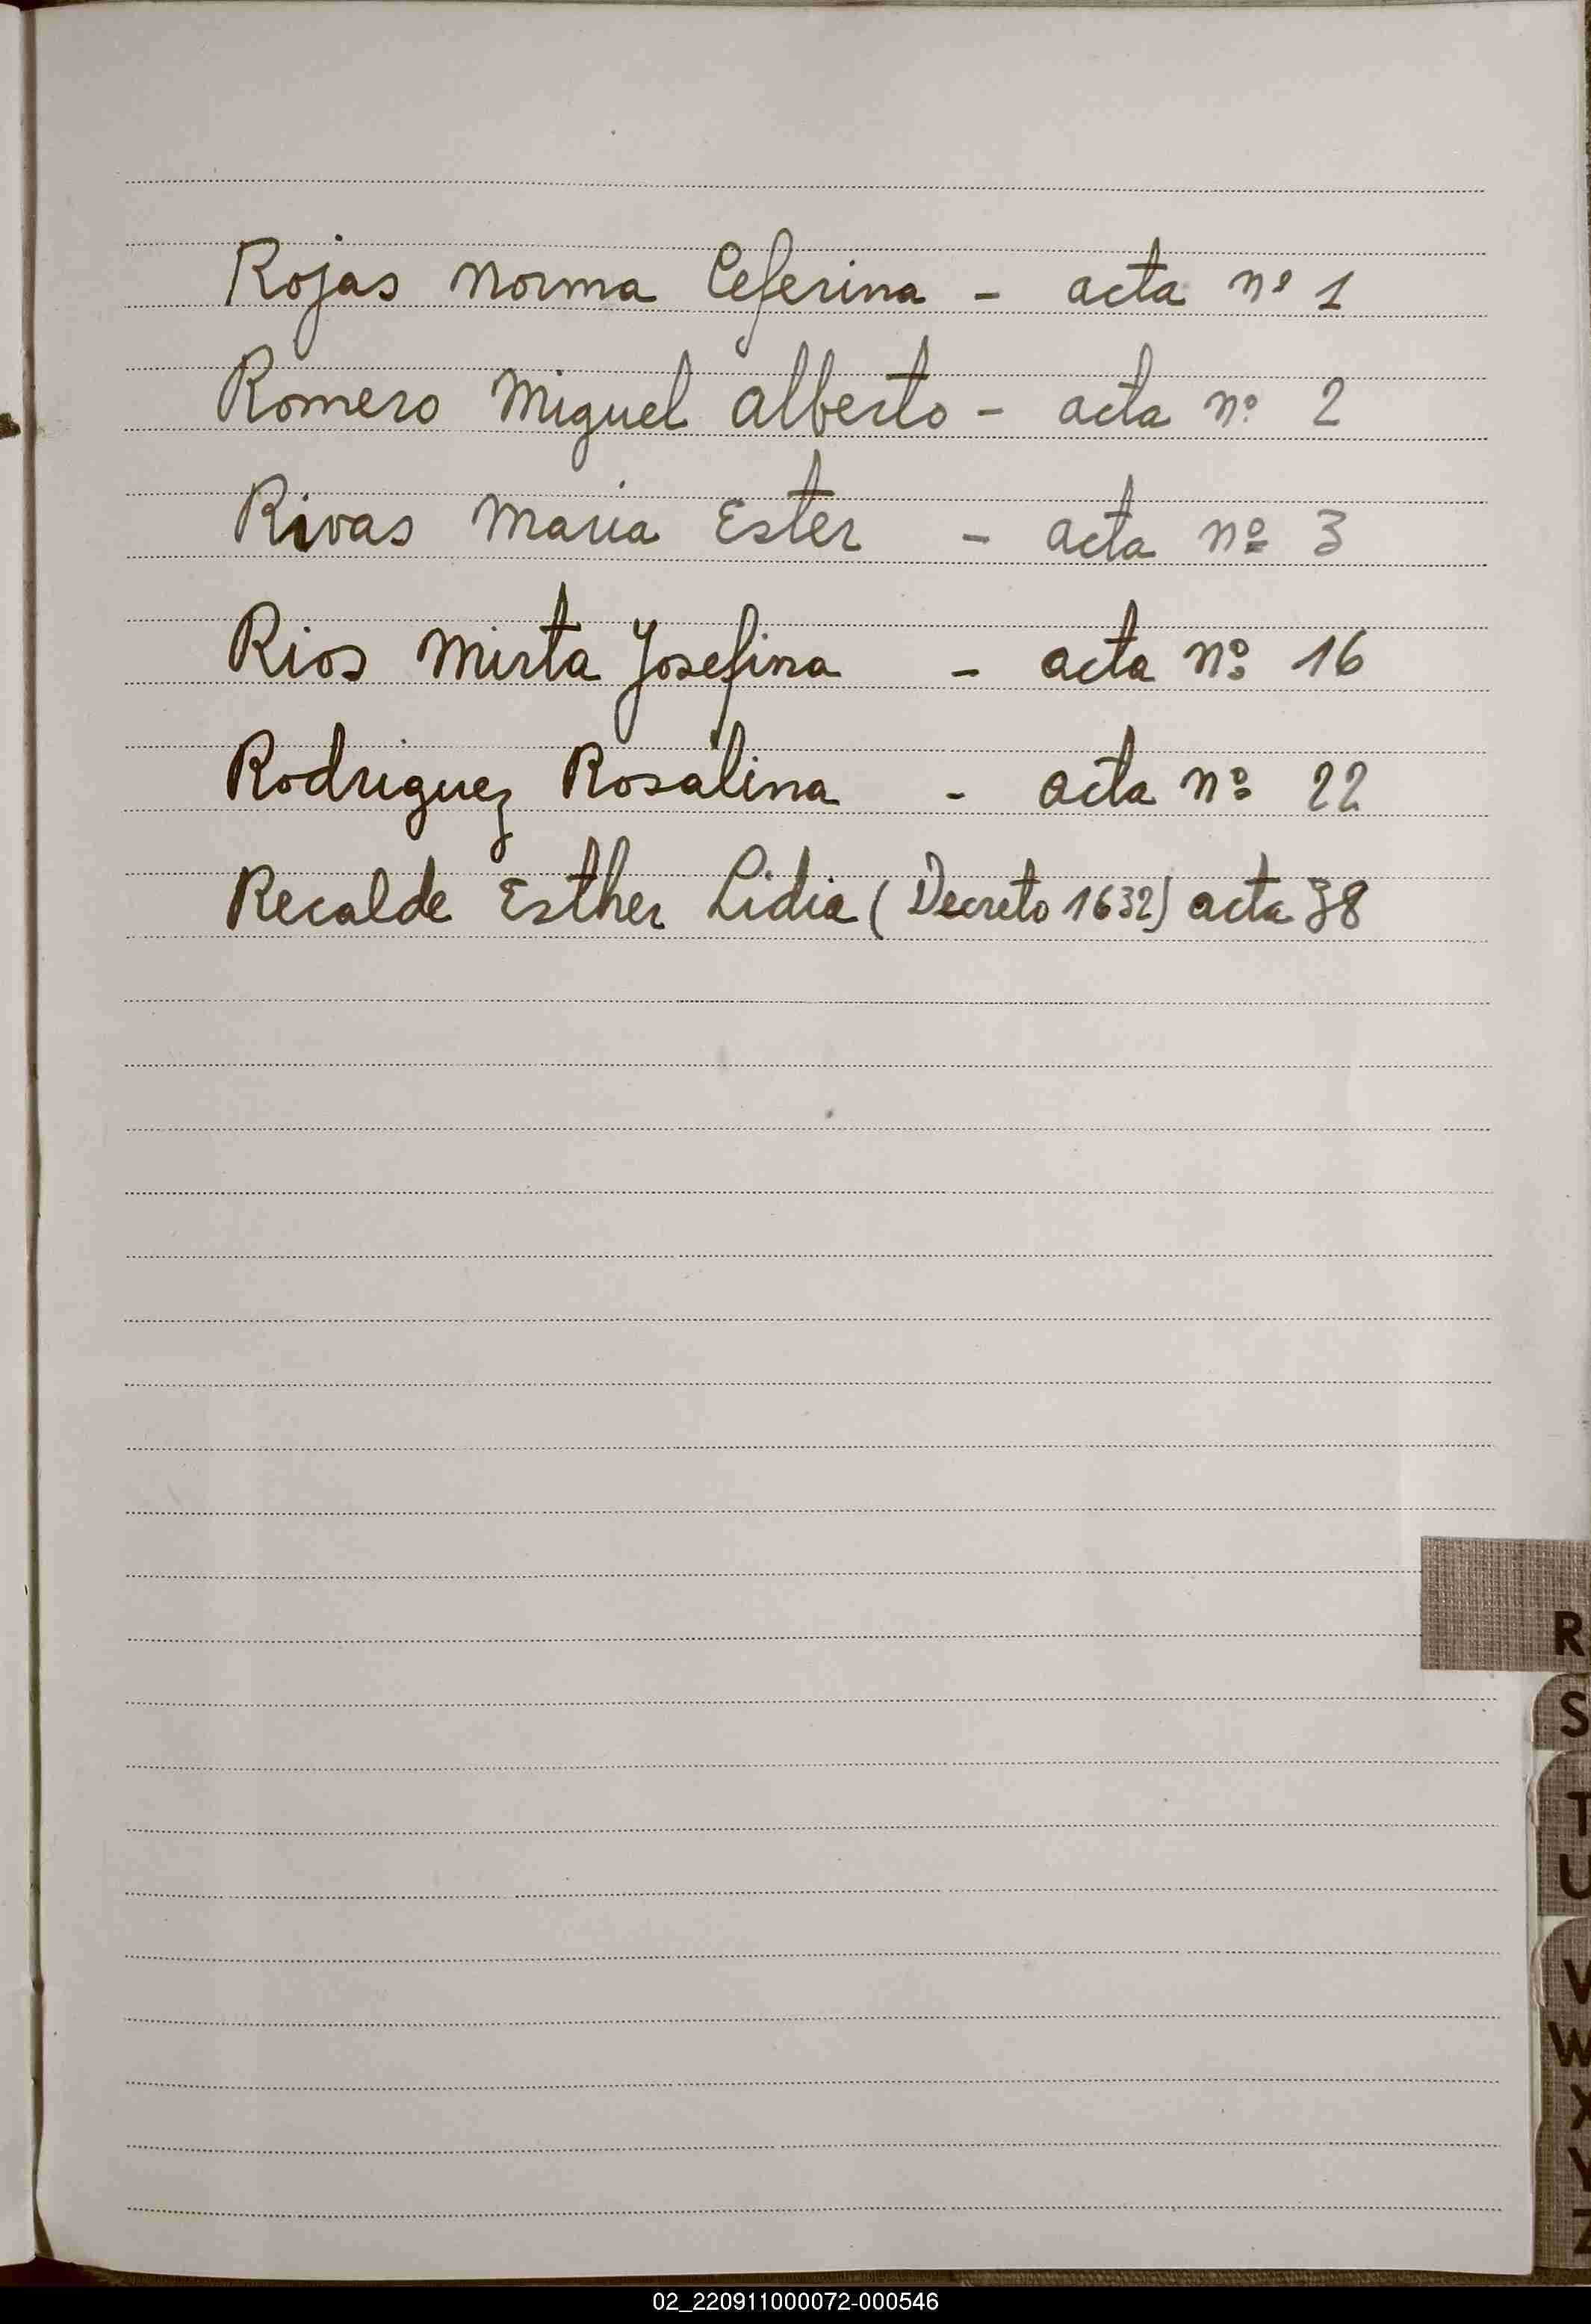 Rojas Norma Ceferina - acta nº 1
Romero Miguel Alberto - acta nº 2
Rivas Maria Ester - acta nº 3
Rios Mirta Josefina - acta nº 16
Rodriguez Rosalina - acta nº 22
Recalde Esther Lidia (Decreto 1632) acta 38
R
S
T
U
V
W
X
Y
Z
02_220911000072-000546